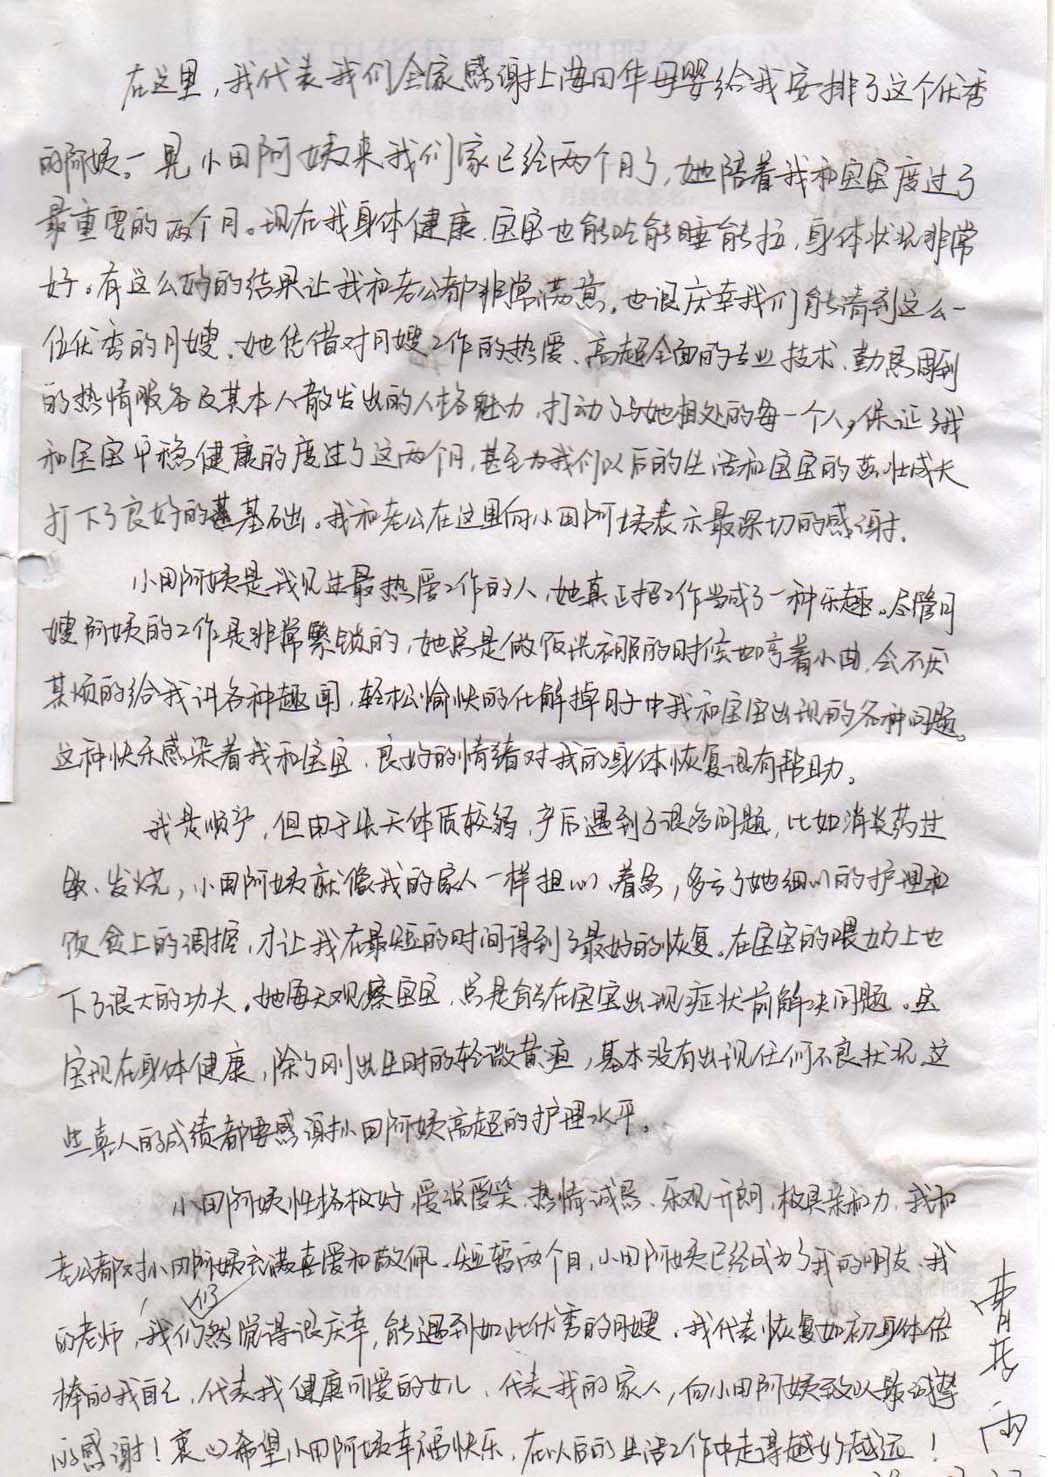 在这里，我代表我们全家感谢上海田华母婴给我安排了这个优秀
的阿姨。一晃小田阿姨来我们家已经两个月了，她陪着我和宝宝度过了
最重要的两个月。现在我身体健康、宝宝也能吃能睡能拉，身体状况非常
好。有这么好的结果让我和老公都非常满意。也很庆幸我们能请到这么一
位优秀的月嫂。她凭借对月嫂工作的热爱、高超全面的专业技术、勤恳周到
的热情服务及其本人散发出的人格魅力，打动了与她相处的每一个人，保证了我
和宝宝平稳健康的度过了这两个月，甚至为我们以后的生活和宝宝的茁壮成长
打下了良好的基础。我和老公在这里向小田阿姨表示最深切的感谢。
小田阿姨是我见过最热爱工作的人，她真正把工作当成了一种乐趣。尽管月
嫂阿姨的工作是非常繁锁的，她总是做饭洗衣服的时候如哼着小曲，会不厌
其烦的给我讲各种趣闻，轻松愉快的化解掉月子中我和宝宝出现的各种问题。
这种快乐感染着我和宝宝，良好的情绪对我的身体恢复很有帮助。
我是顺产，但由于先天体质较弱，产后遇到了很多问题，比如消炎药过
敏、发烧，小田阿姨就像我的家人一样担心着急，多亏了她细心的护理和
饮食上的调控，才让我在最短的时间得到了最好的恢复。在宝宝的喂奶上也
下了很大的功夫。她每天观察宝宝，总是能在宝宝出现症状前解决问题。宝
宝现在身体健康，除了刚出生时的轻微黄疸，基本没有出现任何不良状况，这
些喜人的成绩都要感谢小田阿姨高超的护理水平。
小田阿姨性格极好，爱说爱笑、热情诚恳、乐观开朗，极具亲和力，我和
老公都对小田阿姨充满喜爱和敬佩。短暂两个月，小田阿姨已经成为了我的朋友、我
的老师，我们然觉得很庆幸，能遇到如此优秀的月嫂。我代表恢复如初身体倍
棒的我自己，代表我健康可爱的女儿、代表我的家人，向小田阿姨致以最诚挚
的感谢！衷心希望小田阿姨幸福快乐，在以后的生活工作中走得越好越远！